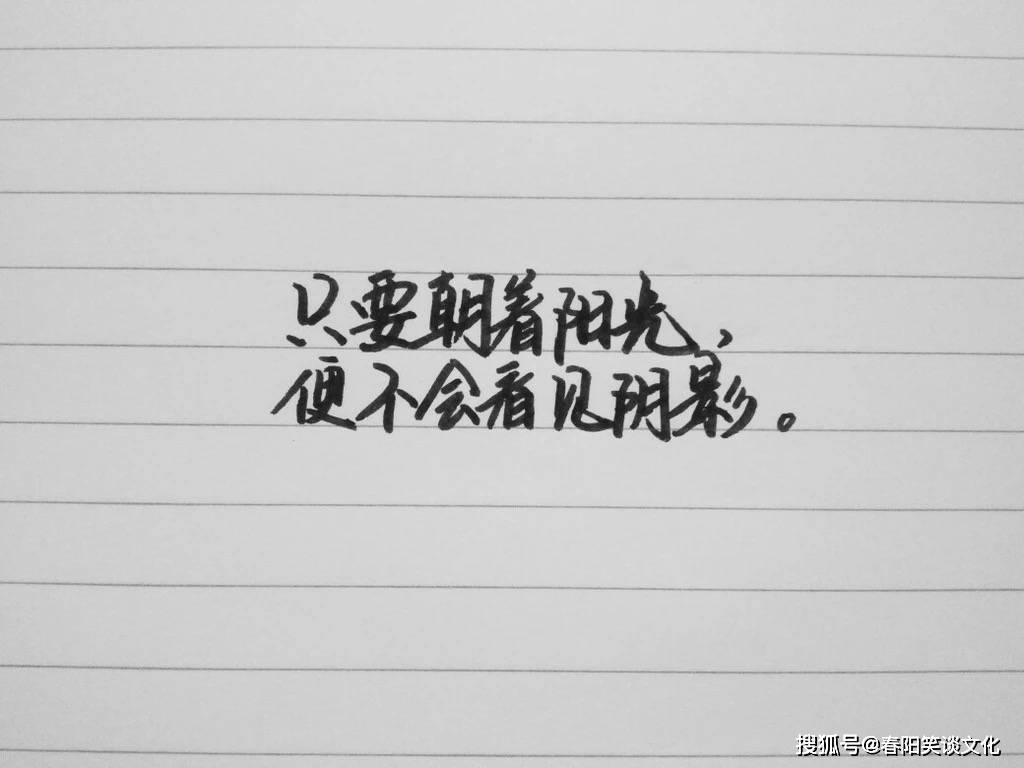 只要朝着阳光，
便不会看见阴影。
搜狐号@春阳笑谈文化